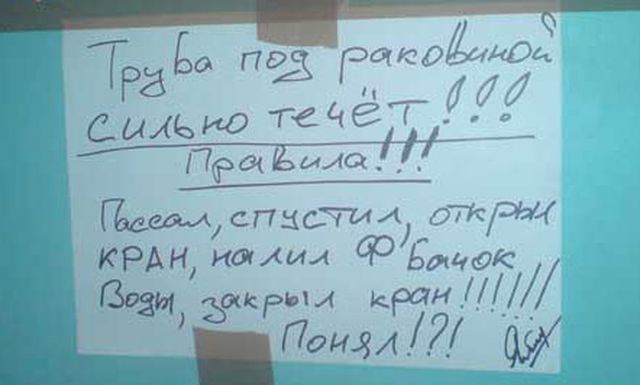 Труба под раковиной
сильно течёт!!!
Правила!!!
Пассал, спустил, открыл
КРАН, налил Ф'Бачок
Воды, закрыл кран!!!!!!
Понял!?!